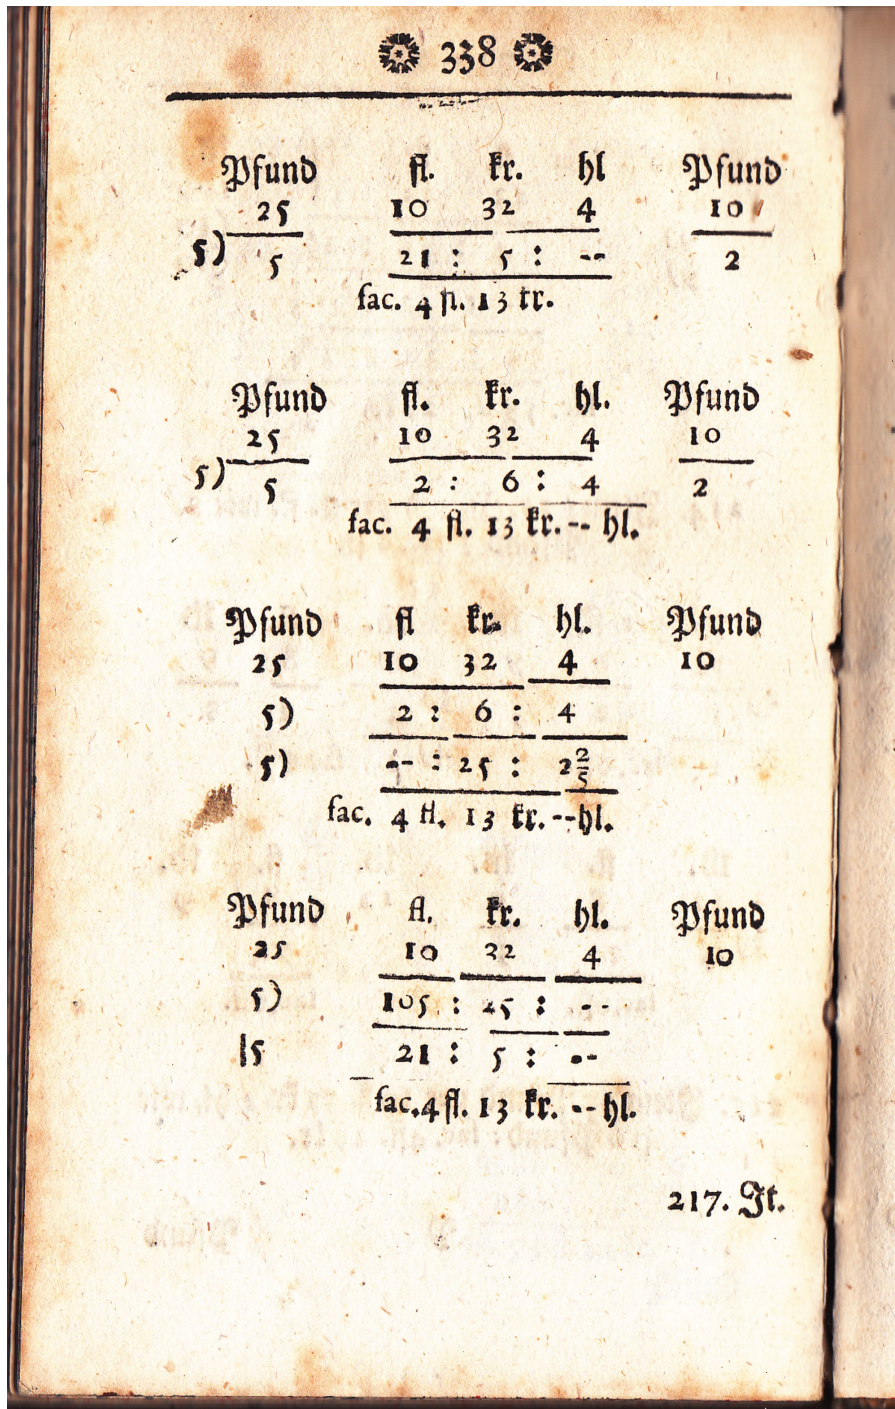 338
Pfund fl. kr. hl Pfund
25 10 32 4 10
5) 5 21 : 5 : -- 2
fac. 4 fl. 13 kr.
Pfund fl. kr. hl. Pfund
25 10 32 4 10
5) 5 2 : 6 : 4 2
fac. 4 fl. 13 kr. -- hl.
Pfund fl kr. hl. Pfund
25 10 32 4 10
5) 2 : 6 : 4
5) -- : 25 : 2 2/5
fac. 4 fl. 13 kr. -- hl.
Pfund fl. kr. hl. Pfund
25 10 32 4 10
5) 105 : 25 : --
|5 21 : 5 : --
fac. 4 fl. 13 kr. -- hl.
217. It.